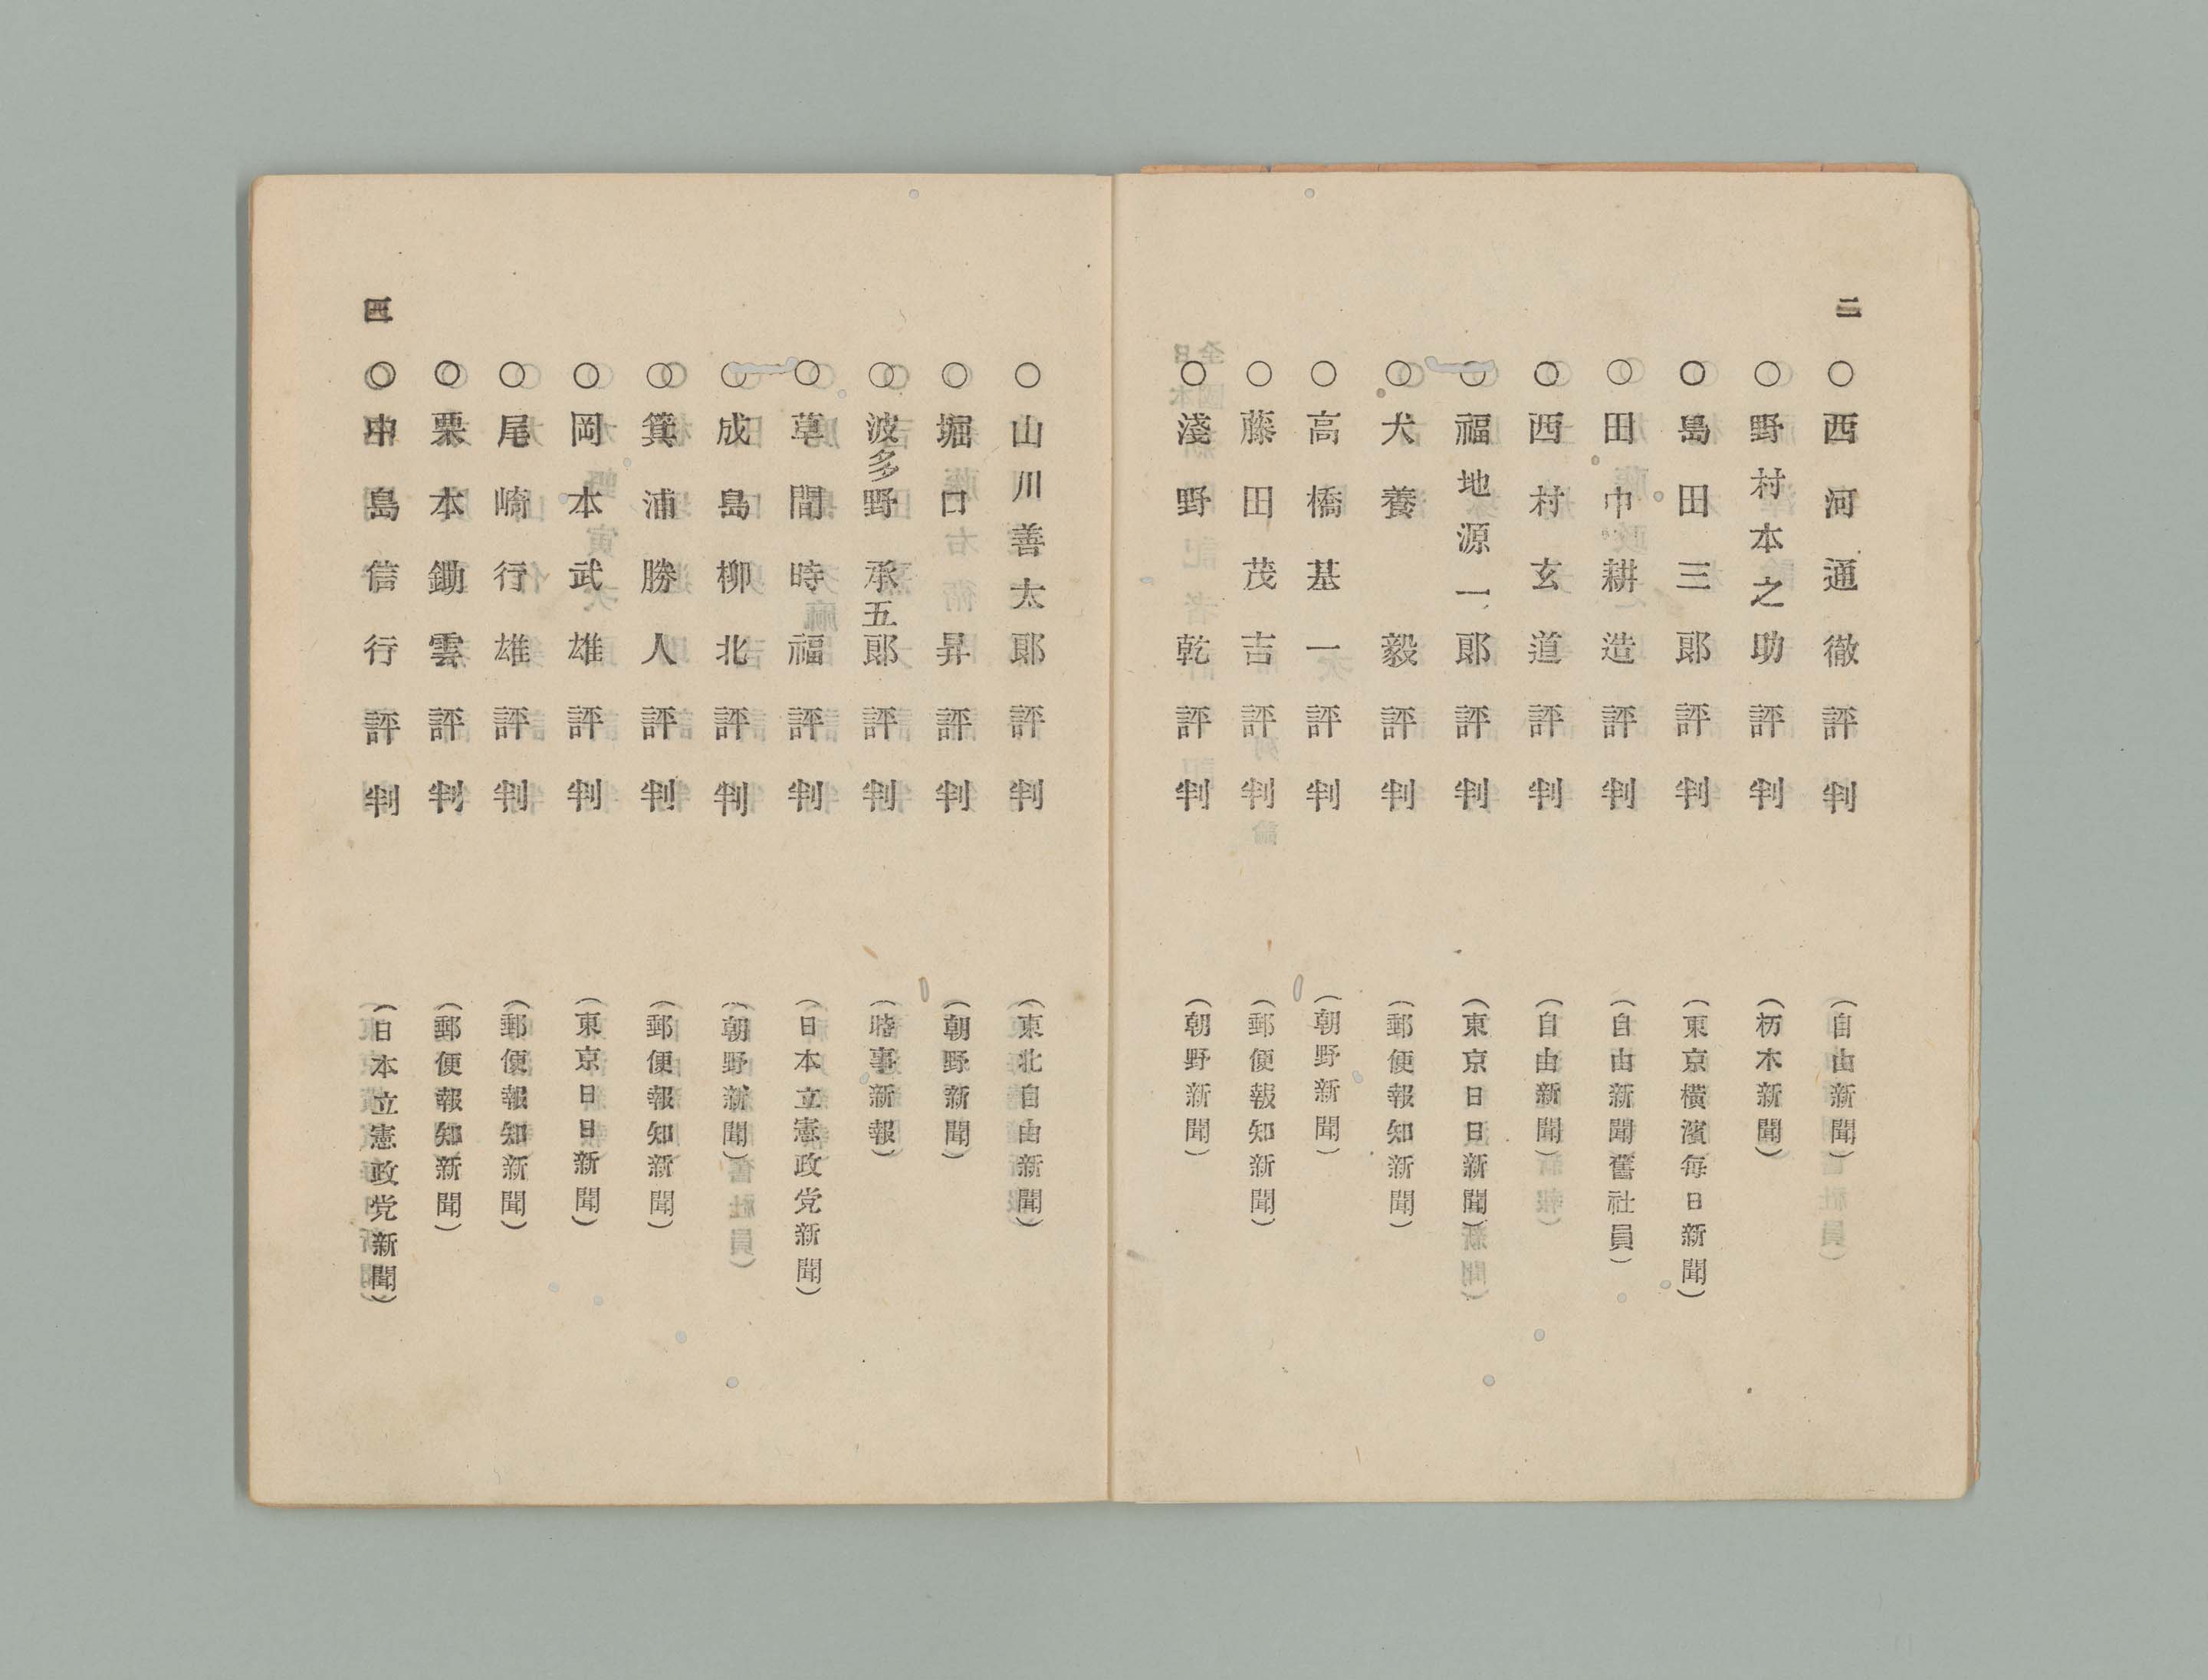 二
○西河通徹評判 (自由新聞)
○野村本之助評判 (栃木新聞)
○島田三郎評判 (東京橫濱每日新聞)
○田中耕造評判 (自由新聞舊社員)
○西村玄道評判 (自由新聞)
○福地源一郎評判 (東京日日新聞)
○犬養毅評判 (郵便報知新聞)
○高橋基一評判 (朝野新聞)
○藤田茂吉評判 (郵便報知新聞)
○淺野乾評判 (朝野新聞)
○山川善太郎評判 (東北自由新聞)
○堀口昇評判 (朝野新聞)
○波多野承五郎評判 (時事新報)
○草間時福評判 (日本立憲政党新聞)
○成島柳北評判 (朝野新聞)
○箕浦勝人評判 (郵便報知新聞)
○岡本武雄評判 (東京日日新聞)
○尾崎行雄評判 (郵便報知新聞)
○栗本鋤雲評判 (郵便報知新聞)
○中島信行評判 (日本立憲政党新聞)
四